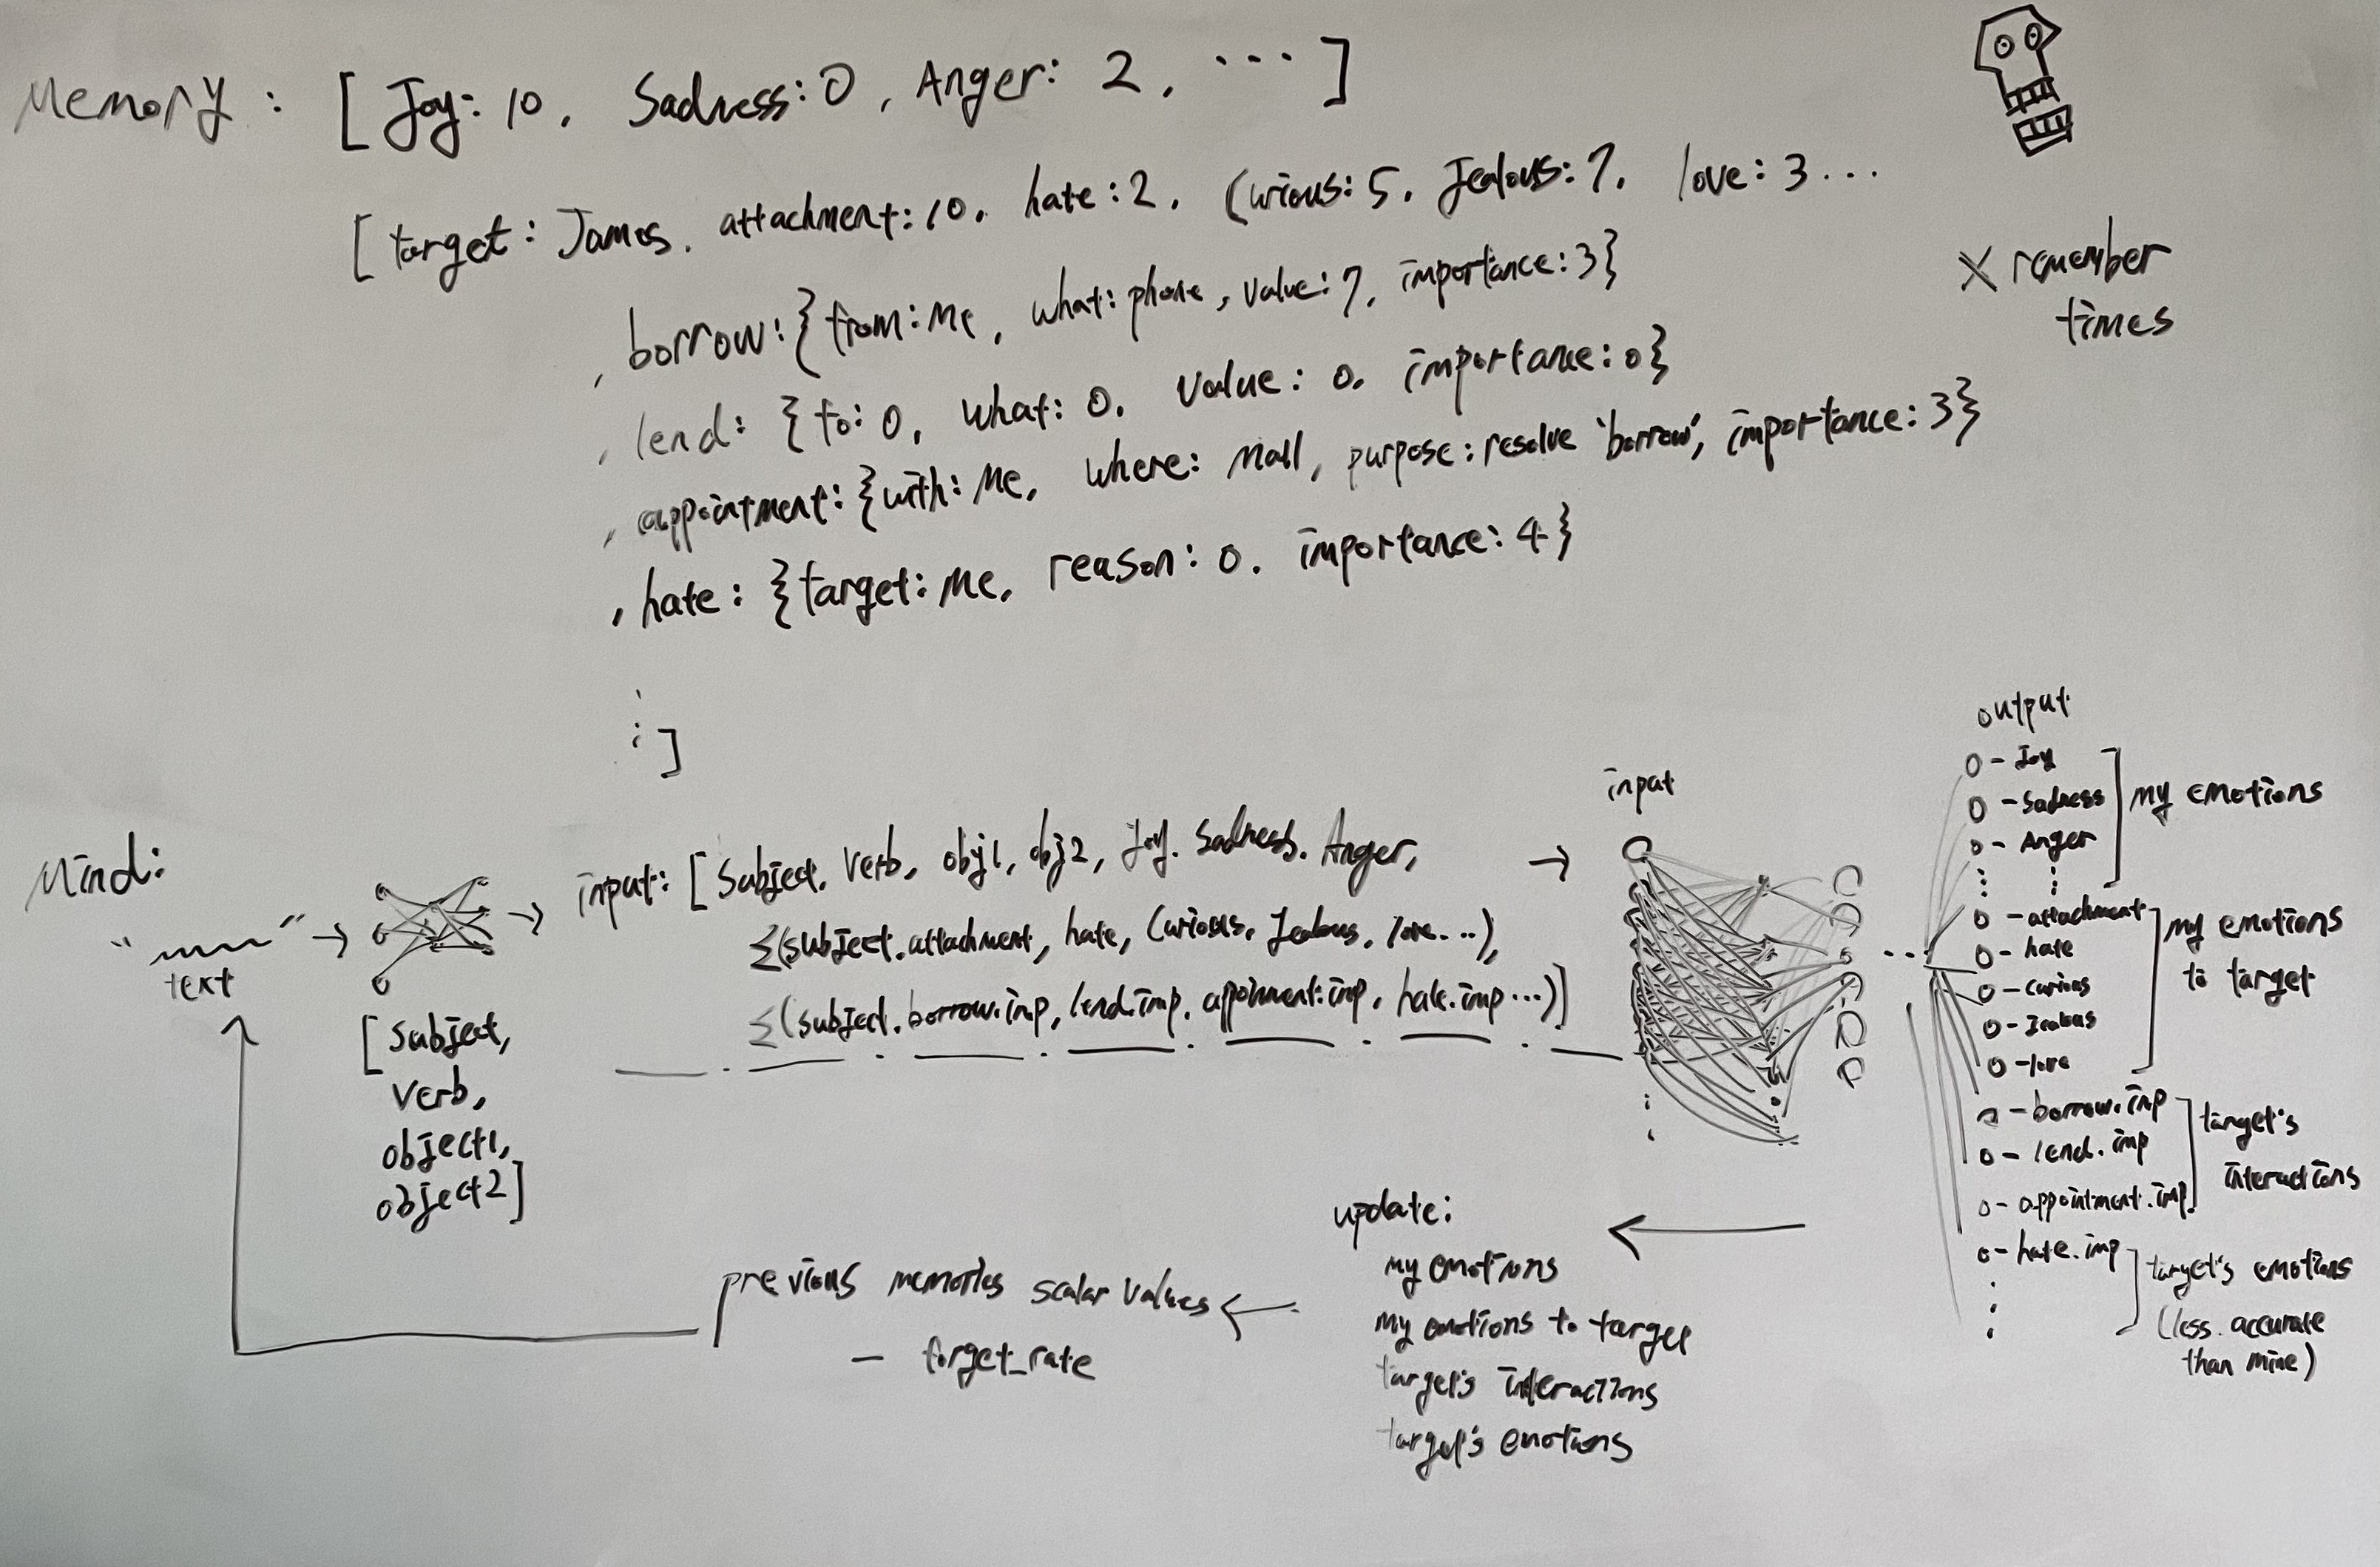 Memory : [ Joy: 10, Sadness: 0, Anger: 2, ... ]
[ target: James, attachment: 10, hate: 2, Curious: 5, Jealous: 7, love: 3 ...
, borrow: { from: Me, what: phone, value: 7, importance: 3}
, lend: { to: 0, what: 0, value: 0, importance: 0}
, appointment: {with: Me, where: Mall, purpose: resolve 'borrow', importance: 3}
, hate: {target: Me, reason: 0, importance: 4}
⋮ ]
X remember
times
Mind:
"~~~"
text
→
[subject,
verb,
object1,
object2]
→ input: [Subject, Verb, obj1, obj2, Joy, Sadness, Anger,
Σ(subject.attachment, hate, Curious, Jealous, love...),
Σ(subject.borrow.imp, lend.imp, appoinment.imp, hate.imp...)]
→ input
output
O - Joy
O - Sadness
O - Anger
my emotions
O - attachment
O - hate
O - curious
O - Jealous
O - love
my emotions
to target
O - borrow.imp
O - lend.imp
O - appointment.imp
target's
interactions
O - hate.imp
target's emotions
(less accurate
than mine)
←
update:
my emotions
my emotions to target
target's interactions
target's emotions
←
previous memories scalar values
- forget_rate